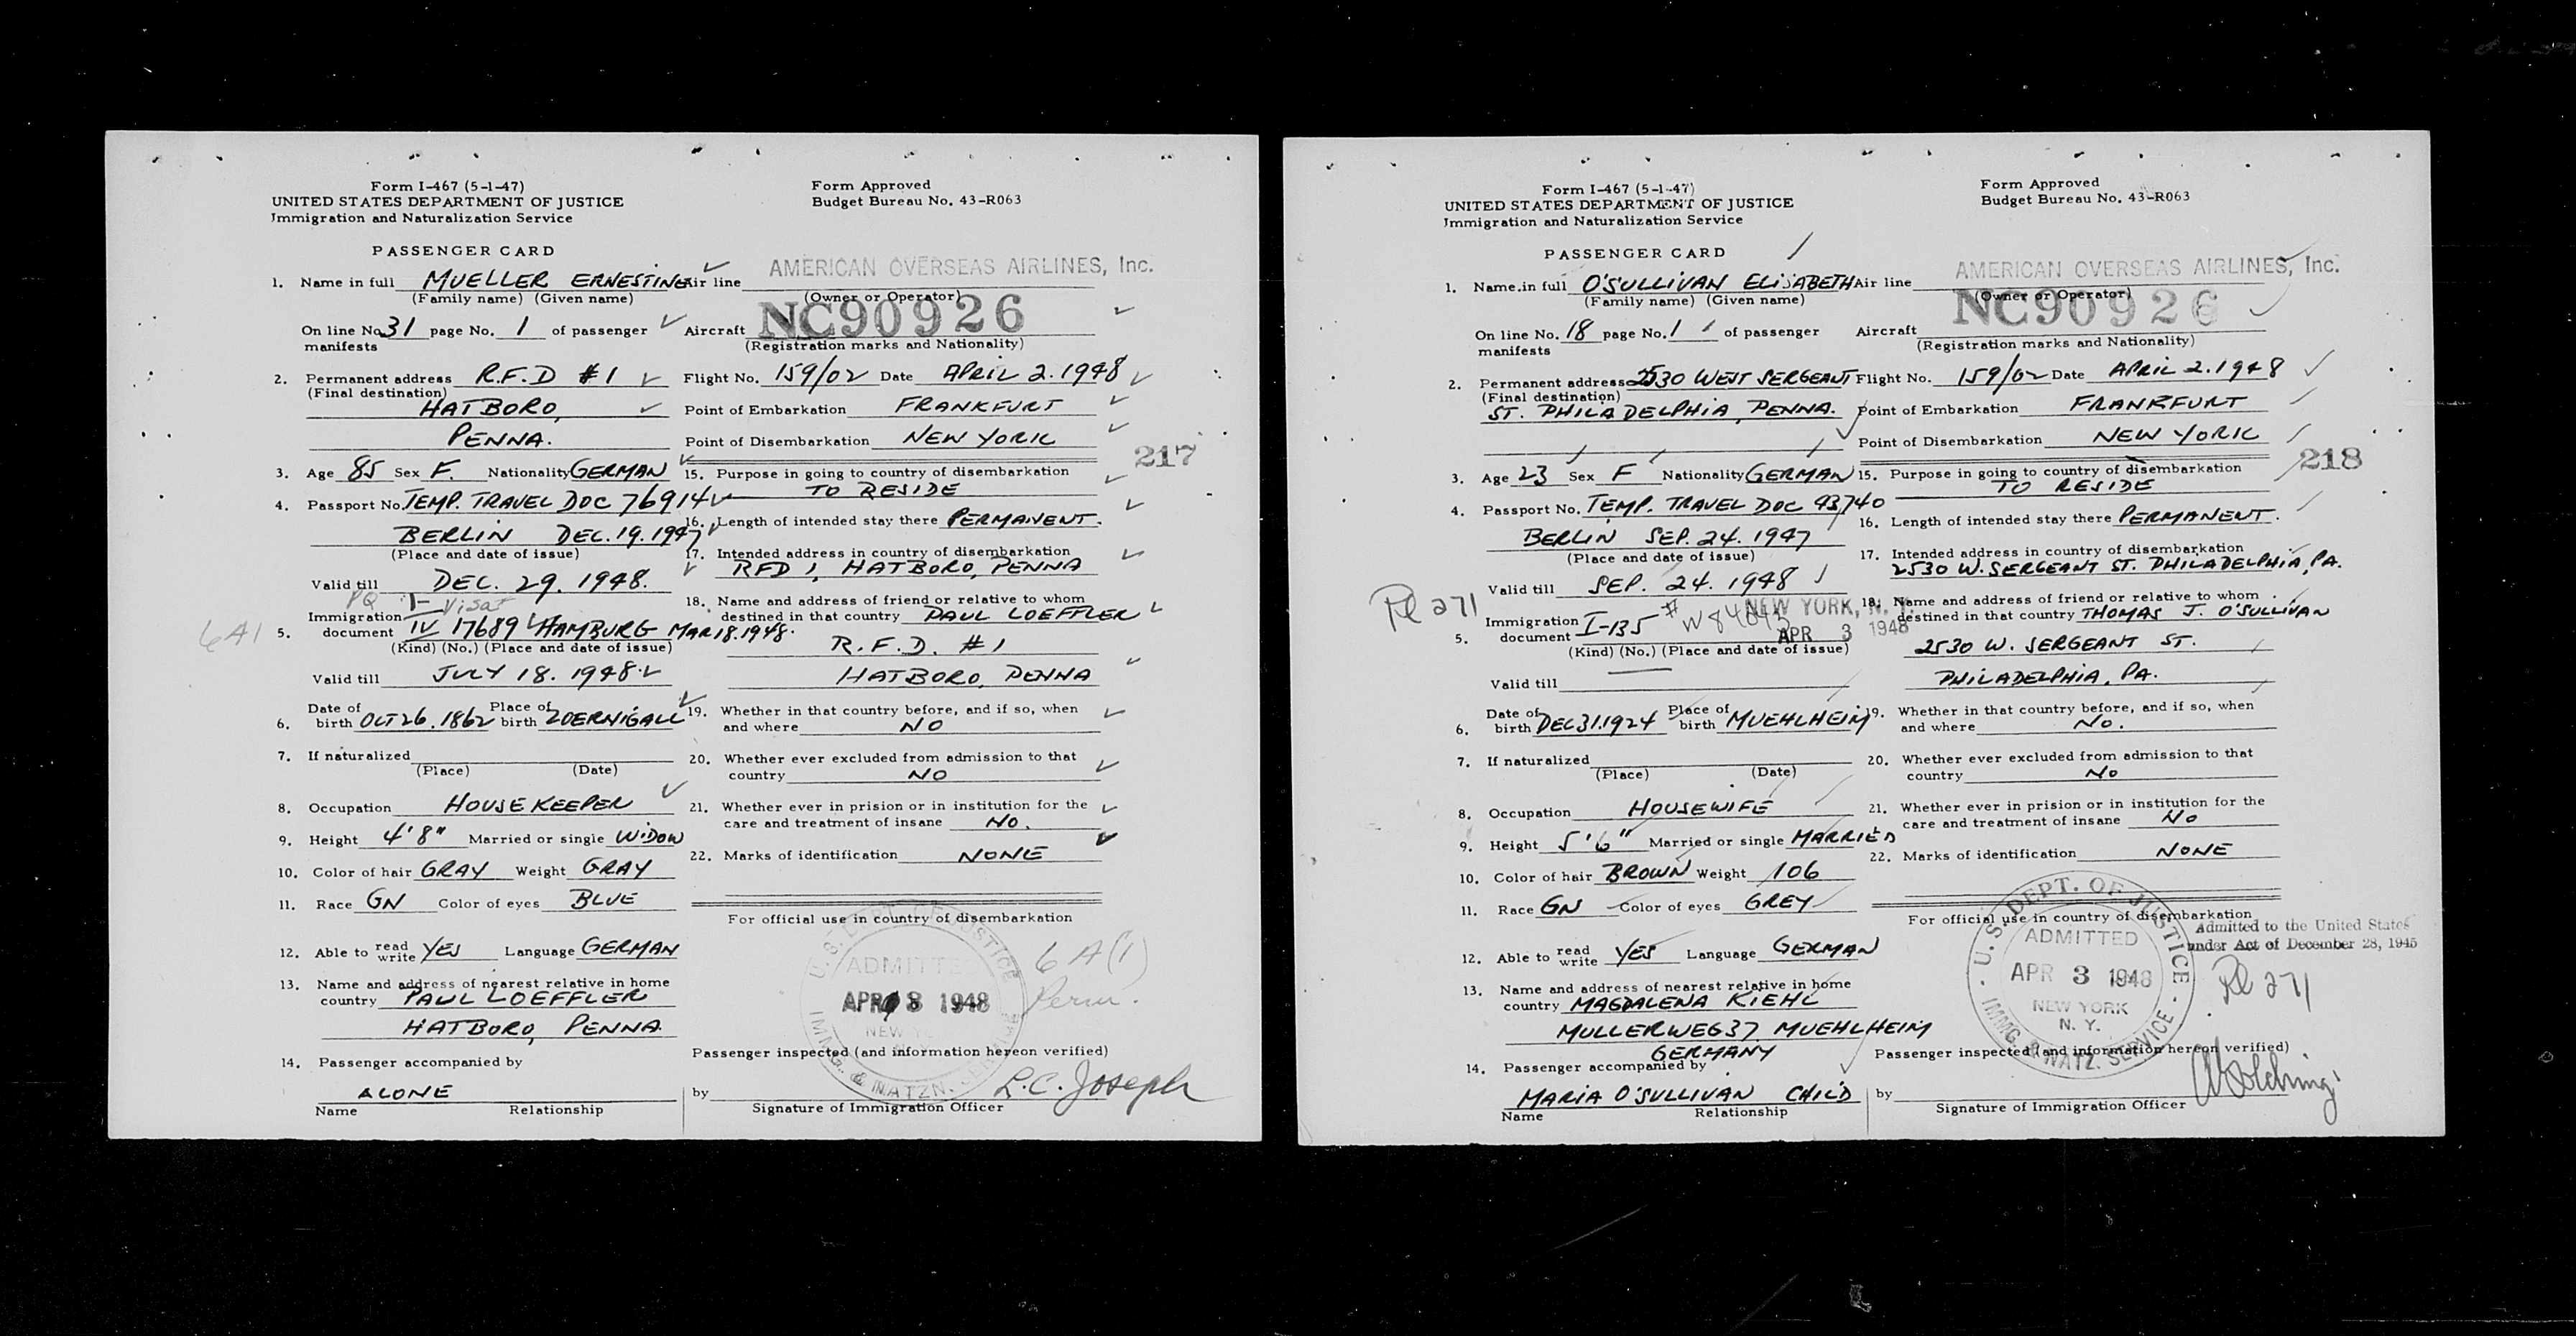 Form I-467 (5-1-47)
UNITED STATES DEPARTMENT OF JUSTICE
Immigration and Naturalization Service
Form Approved
Budget Bureau No. 43-R063
PASSENGER CARD
1. Name in full MUELLER ERNESTINE
(Family name) (Given name)
On line No. 31 page No. 1 of passenger
manifests
2. Permanent address R.F.D #1
(Final destination)
HATBORO,
PENNA.
3. Age 85 Sex F. Nationality GERMAN
4. Passport No. TEMP. TRAVEL DOC 76914
BERLIN DEC. 19. 1947
(Place and date of issue)
Valid till DEC. 29. 1948.
PQ I- Visa
6A1
Immigration
5. document IV 17689 HAMBURG MAR 18.1948.
(Kind) (No.) (Place and date of issue)
Valid till JULY 18. 1948.
6. Date of birth OCT 26. 1862 Place of birth ZOERNIGALL
7. If naturalized
(Place) (Date)
8. Occupation HOUSEKEEPER
9. Height 4'8" Married or single WIDOW
10. Color of hair GRAY Weight GRAY
11. Race GN Color of eyes BLUE
12. Able to read write YES Language GERMAN
13. Name and address of nearest relative in home
country PAUL LOEFFLER
HATBORO, PENNA.
14. Passenger accompanied by
ALONE
Name Relationship
Air line AMERICAN OVERSEAS AIRLINES, Inc.
(Owner or Operator)
Aircraft NC90926
(Registration marks and Nationality)
Flight No. 159/02 Date APRIL 2. 1948
Point of Embarkation FRANKFURT
Point of Disembarkation NEW YORK
217
15. Purpose in going to country of disembarkation
TO RESIDE
16. Length of intended stay there PERMANENT.
17. Intended address in country of disembarkation
RFD 1, HATBORO, PENNA
18. Name and address of friend or relative to whom
destined in that country PAUL LOEFFLER
R.F.D. #1
HATBORO, PENNA
19. Whether in that country before, and if so, when
and where NO
20. Whether ever excluded from admission to that
country NO
21. Whether ever in prision or in institution for the
care and treatment of insane NO.
22. Marks of identification NONE
For official use in country of disembarkation
U.S. DEPT. OF JUSTICE
ADMITTED
APR 8 1948
NEW
IMMG. & NATZN. SERVICE
6A(1)
Perm.
Passenger inspected (and information hereon verified)
by L.C. Joseph
Signature of Immigration Officer
Form I-467 (5-1-47)
UNITED STATES DEPARTMENT OF JUSTICE
Immigration and Naturalization Service
Form Approved
Budget Bureau No. 43-R063
PASSENGER CARD
1. Name in full O'SULLIVAN ELISABETH
(Family name) (Given name)
On line No. 18 page No. 1 of passenger
manifests
2. Permanent address 2530 WEST SERGEANT
(Final destination)
ST. PHILADELPHIA, PENNA.
3. Age 23 Sex F Nationality GERMAN
4. Passport No. TEMP. TRAVEL DOC 93740
BERLIN SEP. 24. 1947
(Place and date of issue)
Valid till SEP. 24. 1948
PL 271
Immigration
5. document I-135 # NEW YORK, N.Y.
APR 3 1948
(Kind) (No.) (Place and date of issue)
Valid till
6. Date of birth DEC 31.1924 Place of birth MUEHLHEIM
7. If naturalized
(Place) (Date)
8. Occupation HOUSEWIFE
9. Height 5'6" Married or single MARRIED
10. Color of hair BROWN Weight 106
11. Race GN Color of eyes GREY
12. Able to read write YES Language GERMAN
13. Name and address of nearest relative in home
country MAGDALENA KIEHL
MULLERWEG 37 MUEHLHEIM
GERMANY
14. Passenger accompanied by
MARIA O'SULLIVAN CHILD
Name Relationship
Air line AMERICAN OVERSEAS AIRLINES, Inc.
(Owner or Operator)
Aircraft NC90926
(Registration marks and Nationality)
Flight No. 159/02 Date APRIL 2. 1948
Point of Embarkation FRANKFURT
Point of Disembarkation NEW YORK
218
15. Purpose in going to country of disembarkation
TO RESIDE
16. Length of intended stay there PERMANENT.
17. Intended address in country of disembarkation
2530 W. SERGEANT ST. PHILADELPHIA, PA.
18. Name and address of friend or relative to whom
destined in that country THOMAS J. O'SULLIVAN
2530 W. SERGEANT ST.
PHILADELPHIA, PA.
19. Whether in that country before, and if so, when
and where NO.
20. Whether ever excluded from admission to that
country NO
21. Whether ever in prision or in institution for the
care and treatment of insane NO
22. Marks of identification NONE
For official use in country of disembarkation
U.S. DEPT. OF JUSTICE
ADMITTED
APR 3 1948
NEW YORK
N. Y.
IMMG. & NATZ. SERVICE
Admitted to the United States
under Act of December 28, 1945
PL 271
Passenger inspected (and information hereon verified)
by
Signature of Immigration Officer